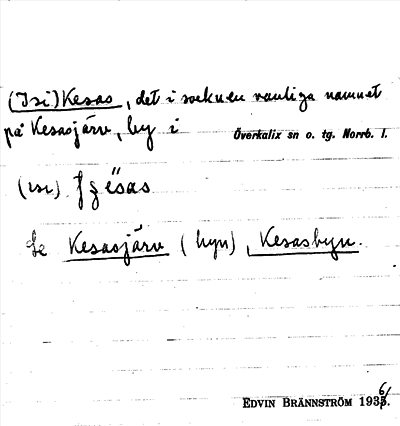 (Isi)Kesas, det i socknen vanliga namnet
på Kesasjärv, by i Överkalix sn o. tg. Norrb. l.
(isi)
Se Kesasjärv (byn), Kesasbyn.
EDVIN BRÄNNSTRÖM 1936.